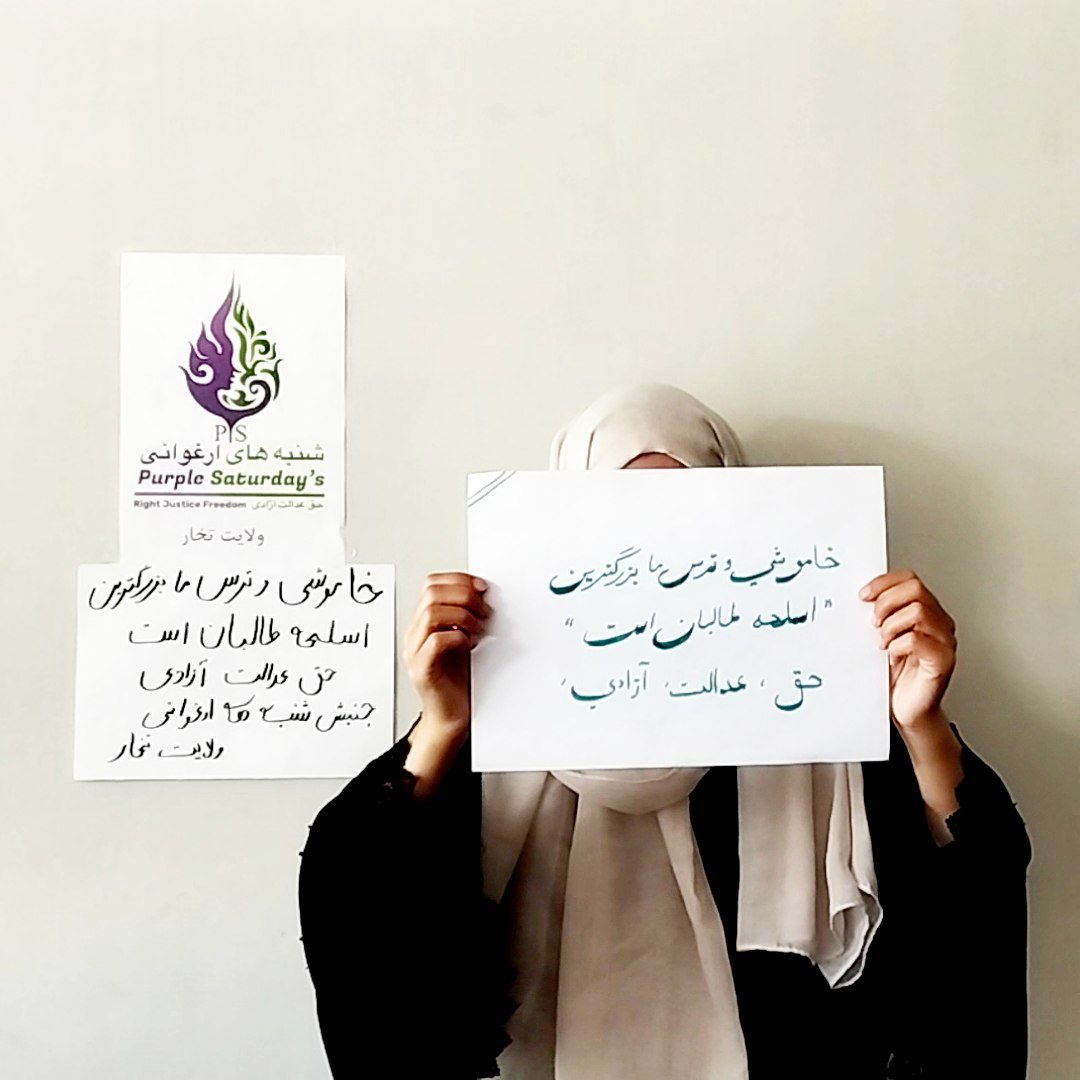 P S
شنبه های ارغوانی
Purple Saturday's
Right Justice Freedom حق عدالت آزادی
ولایت تخار
خاموشی و ترس ما بزرگترین
اسلحه طالبان است
حق عدالت آزادی
جنبش شنبه های ارغوانی
ولایت تخار
خاموشي و ترس ما بزرگترین
"اسلحه طالبان است"
حق ، عدالت ، آزادي ،